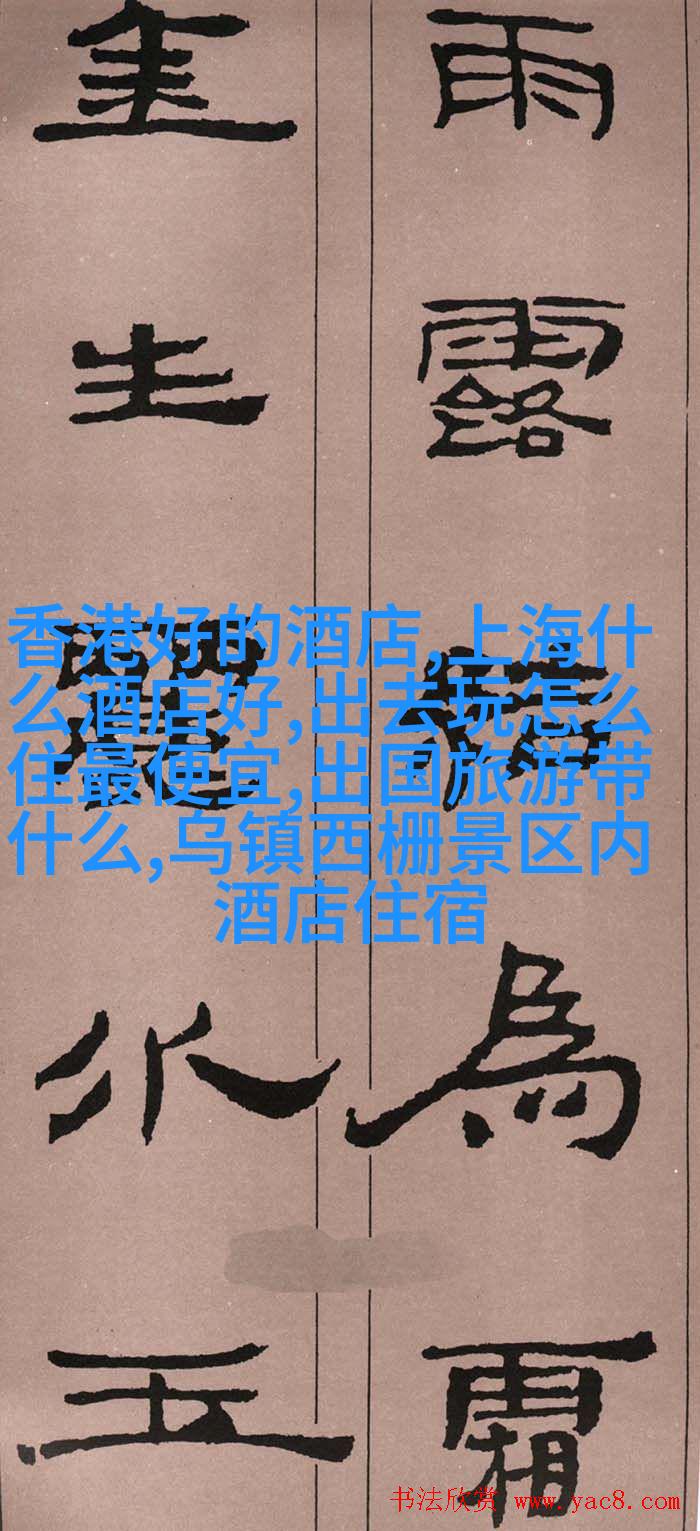 雨露結為霜
金生麗水玉
香港好的酒店,上海什
么酒店好,出去玩怎么
住最便宜,出国旅游带
什么,乌镇西栅景区内
酒店住宿
书法欣赏 www.yac8.com